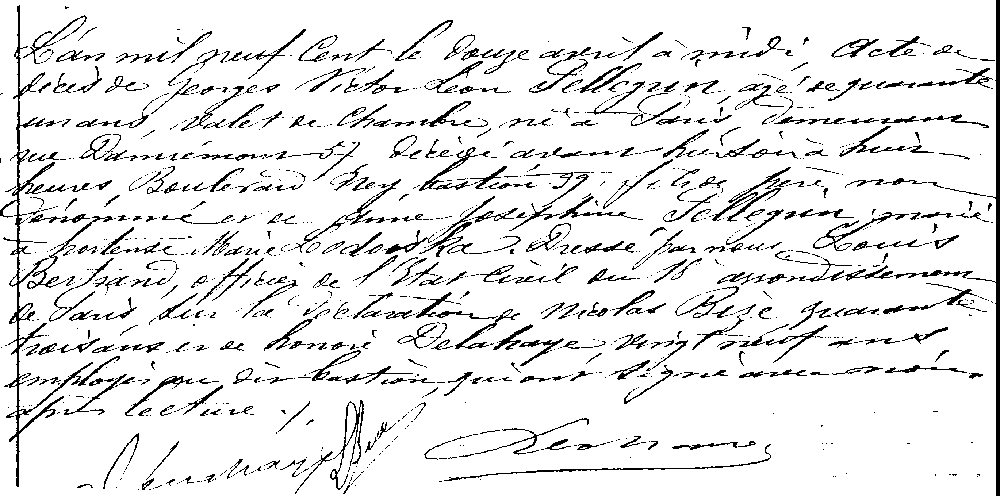 L'an mil neuf Cent le douze avril à midi, Acte de
décès de Georges Victor Léon Pellegrin, agé de quarante
un ans, valet de Chambre, né à Paris, demeurant
rue Damrémont 57 décédé avant hier soir à huit
heures, Boulevard Ney bastion 39. fils de père non
dénommé et de Joséphine Pellegrin; marié
à hortense Marie Lodoiska. Dressé par nous Louis
Bertrand, officier de l'Etat Civil du 18e arrondissement
de Paris sur la déclaration de Nicolas Bize quarante
trois ans et de honoré Delahaye, vingt neuf ans
employés au dit bastion, qui ont signé avec nous
après lecture ./.
Delahaye Bize